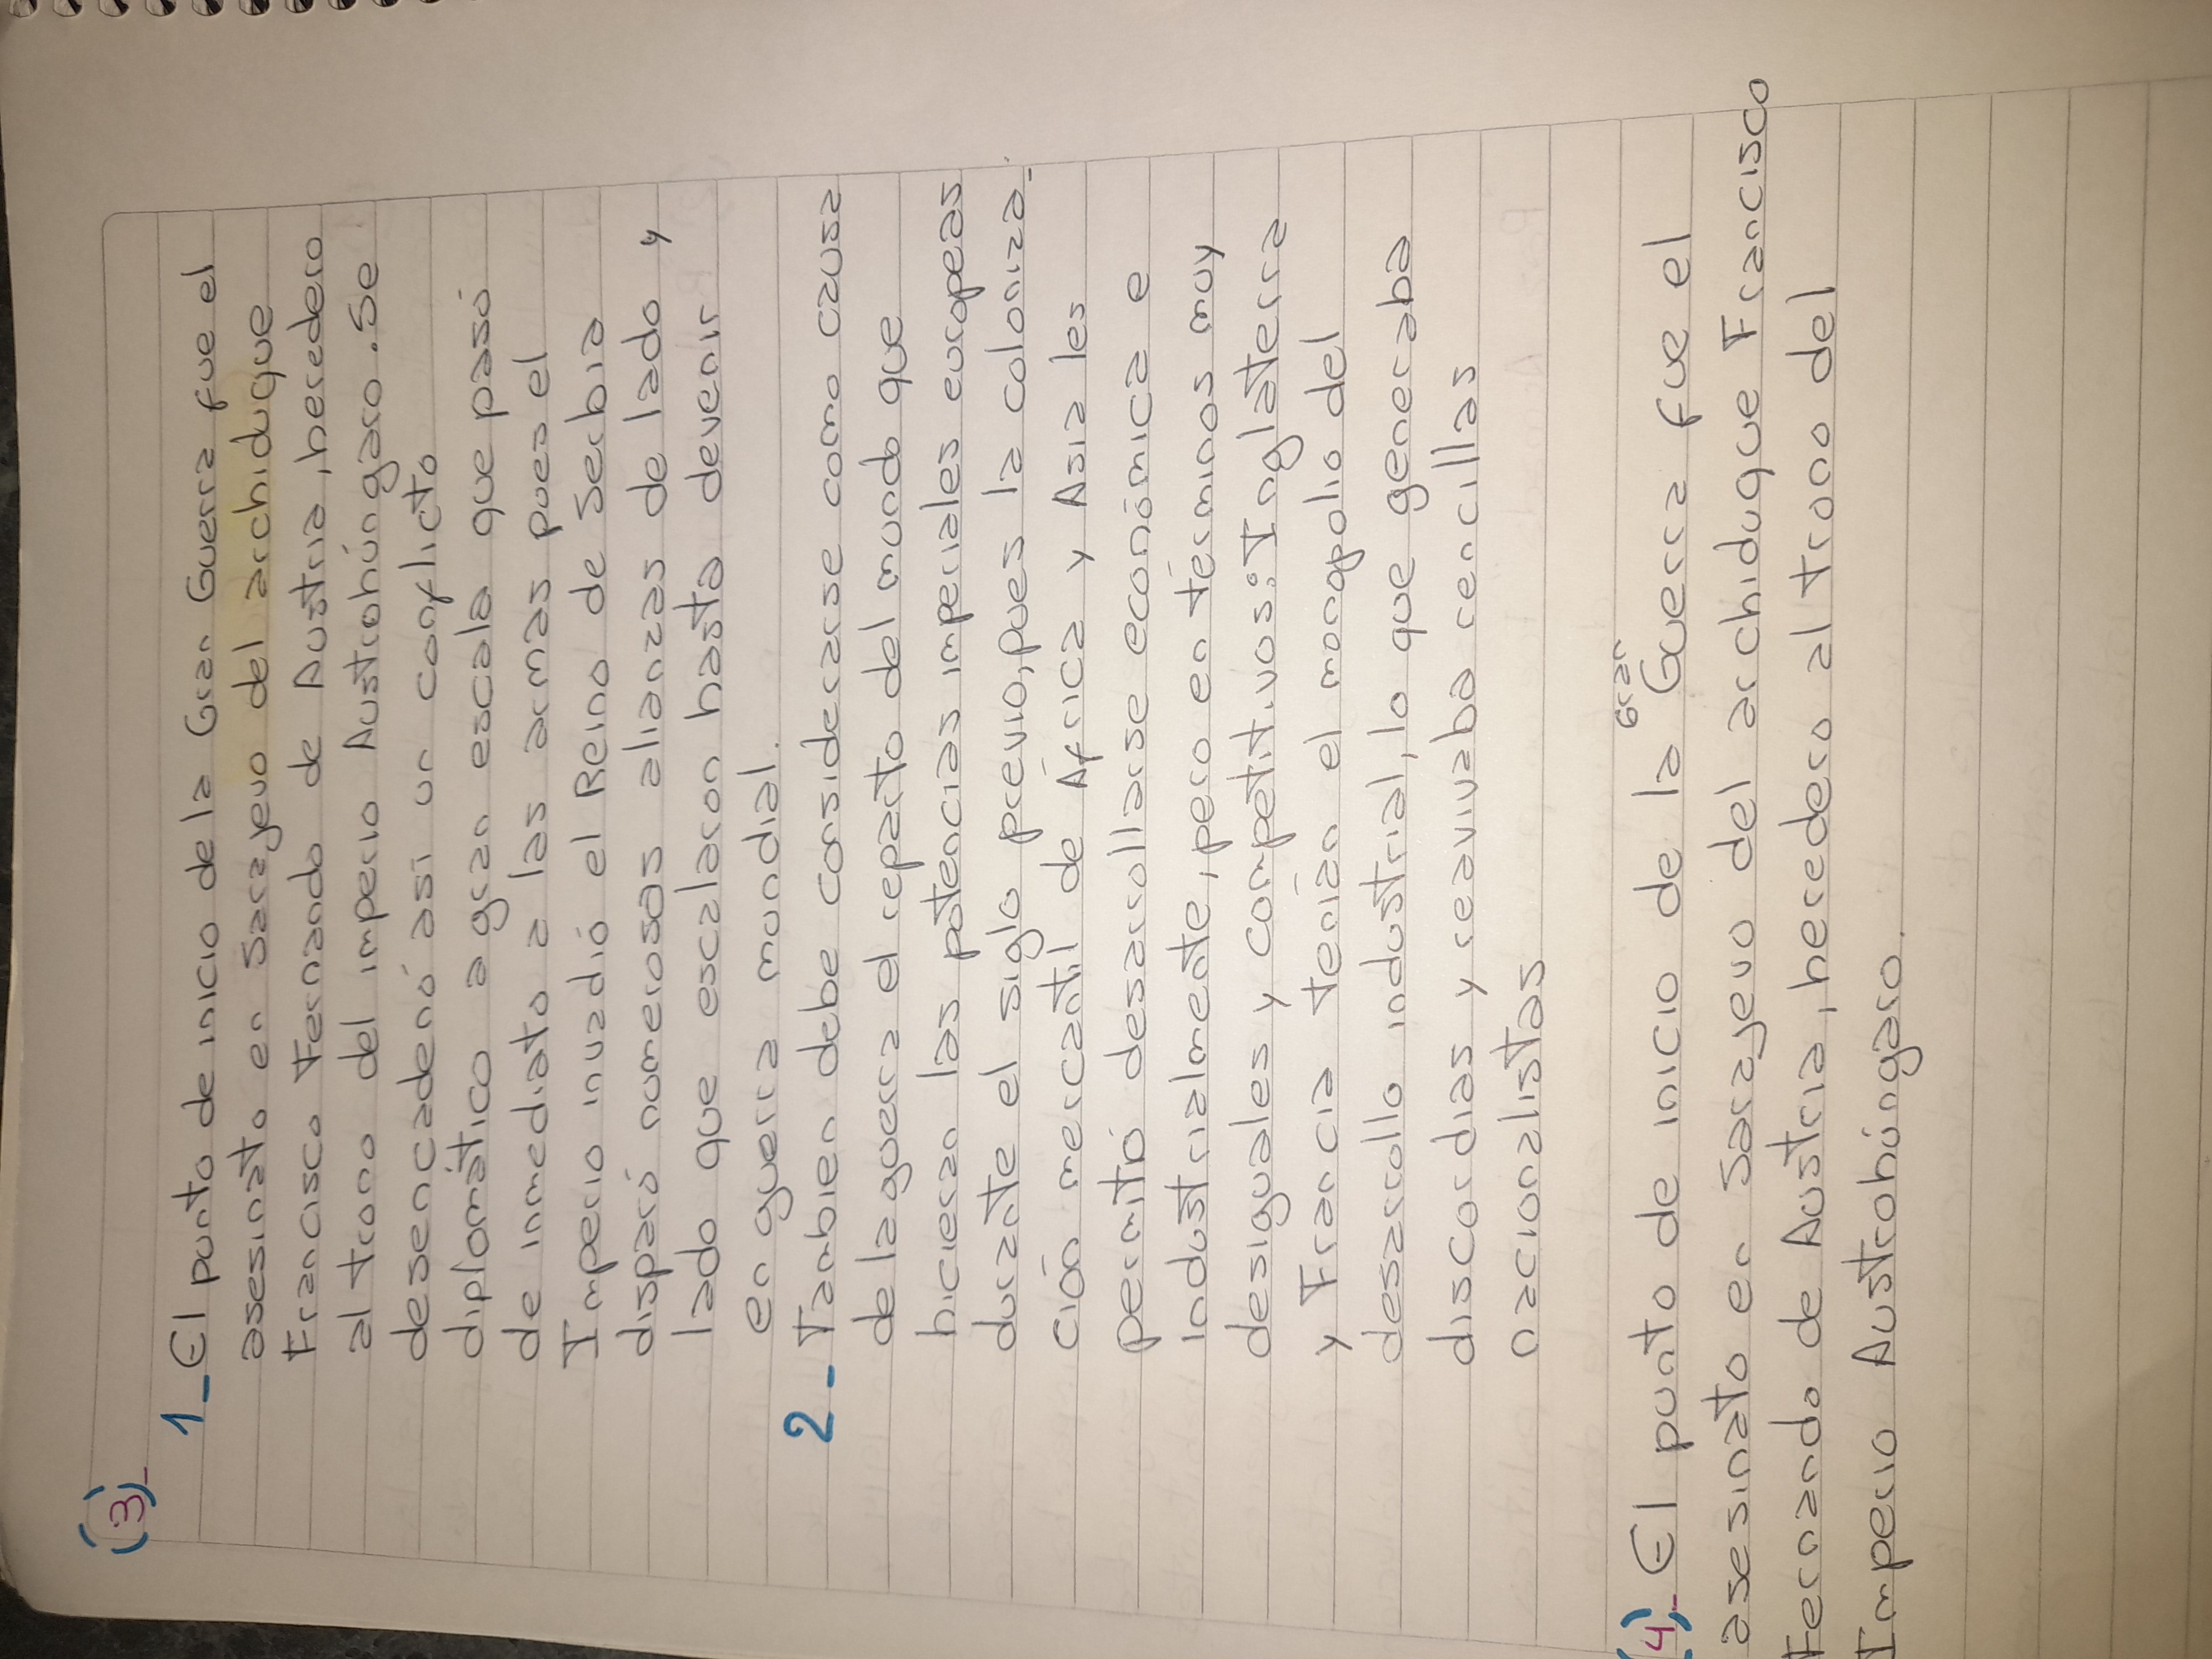 (3)_
1_ El punto de inicio de la Gran Guerra fue el
asesinato en Sarajevo del archiduque
Francisco Fernando de Austria, heredero
al trono del imperio Austrohúngaro. Se
desencadenó así un conflicto
diplomático a gran escala que pasó
de inmediato a las armas pues el
Imperio invadió el Reino de Serbia
disparó numerosas alianzas de lado y
lado que escalaron hasta devenir
en guerra mundial.
2- Tambien debe considerarse como causa
de la guerra el reparto del mundo que
hicieran las potencias imperiales europeas
durante el siglo previo, pues la coloniza-
ción mercantil de África y Asia les
permitió desarrollarse económica e
industrialmente, pero en términos muy
desiguales y competitivos: Inglaterra
y Francia tenían el monopolio del
desarrollo industrial, lo que generaba
discordias y reavivaba rencillas
nacionalistas
(4)_ El punto de inicio de la Gran Guerra fue el
asesinato en Sarajevo del archiduque Francisco
Fernando de Austria, heredero al trono del
Imperio Austrohúngaro.